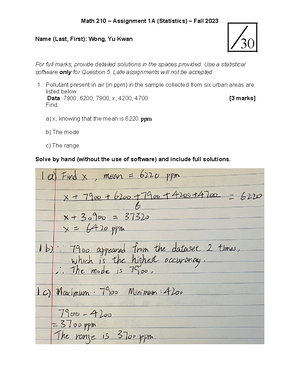 Math 210 – Assignment 1A (Statistics) – Fall 2023
/30
Name (Last, First): Wong, Yu Kwan
For full marks, provide detailed solutions in the spaces provided. Use a statistical
software only for Question 5. Late assignments will not be accepted.
1. Pollutant present in air (in ppm) in the sample collected from six urban areas are
listed below.
Data: 7900, 6200, 7900, x, 4200, 4700 [3 marks]
Find:
a) x, knowing that the mean is 6220 ppm
b) The mode
c) The range
Solve by hand (without the use of software) and include full solutions.
1a) Find x, mean = 6220 ppm
x + 7900 + 6200 + 7900 + 4200 + 4700 = 6220
6
x + 30900 = 37320
x = 6420 ppm
1b) ∵ 7900 appeared from the dataset 2 times,
which is the highest occurancy.
∴ The mode is 7900.
1c) Maximum: 7900 Minimum: 4200
7900 - 4200
= 3700 ppm
The range is 3700 ppm.